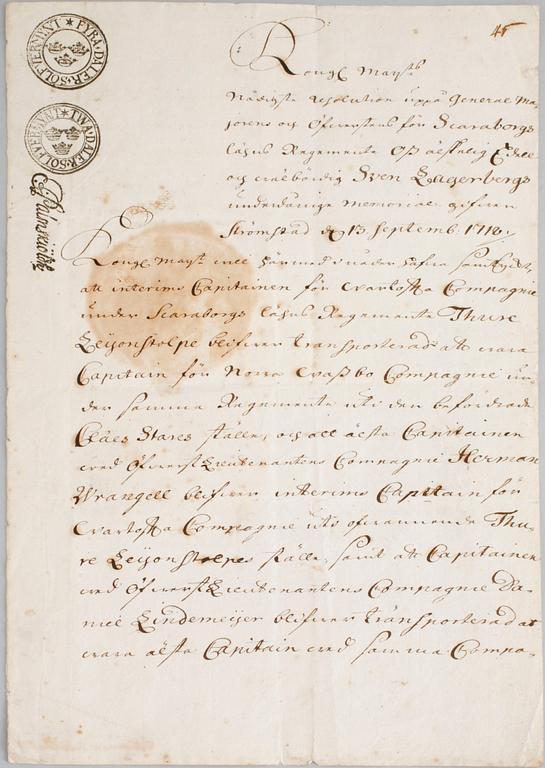 FYRA·DALER·SÖLFVERMYNT
TWA·DALER·SÖLFVERMYNT
45
Kongl May:ts
Nådigste resolution uppå General Ma-
jorens och Öfwerstens för Scaraborgs
Lähns Regemente
och wälbördig Sven Lagerbergs
underdånige memorial gifwen
Strömstad d. 13. Septemb. 1718.
Kongl May:tt
att interims Capitainen för Wartoffta Compagnie
under Scaraborgs Lähns Regemente Thure
Leijonstolpe blifwer transporterad att wara
Capitain för Norra Wassbo Compagnie un-
der samma Regemente uti den befordrade
Claes Stares ställe, och att älsta Capitainen
wed Öfwerst Lieutenantens Compagnie Herman
Wrangell blifwer interims Capitain för
Wartoffta Compagnie uti ofwannemde Thu-
re Leijonstolpes ställe, samt att Capitainen
wed Öfwerst Lieutenantens Compagnie Da-
niel Lindemeijer blifwer transporterad at
wara älsta Capitain wed samma Compa-